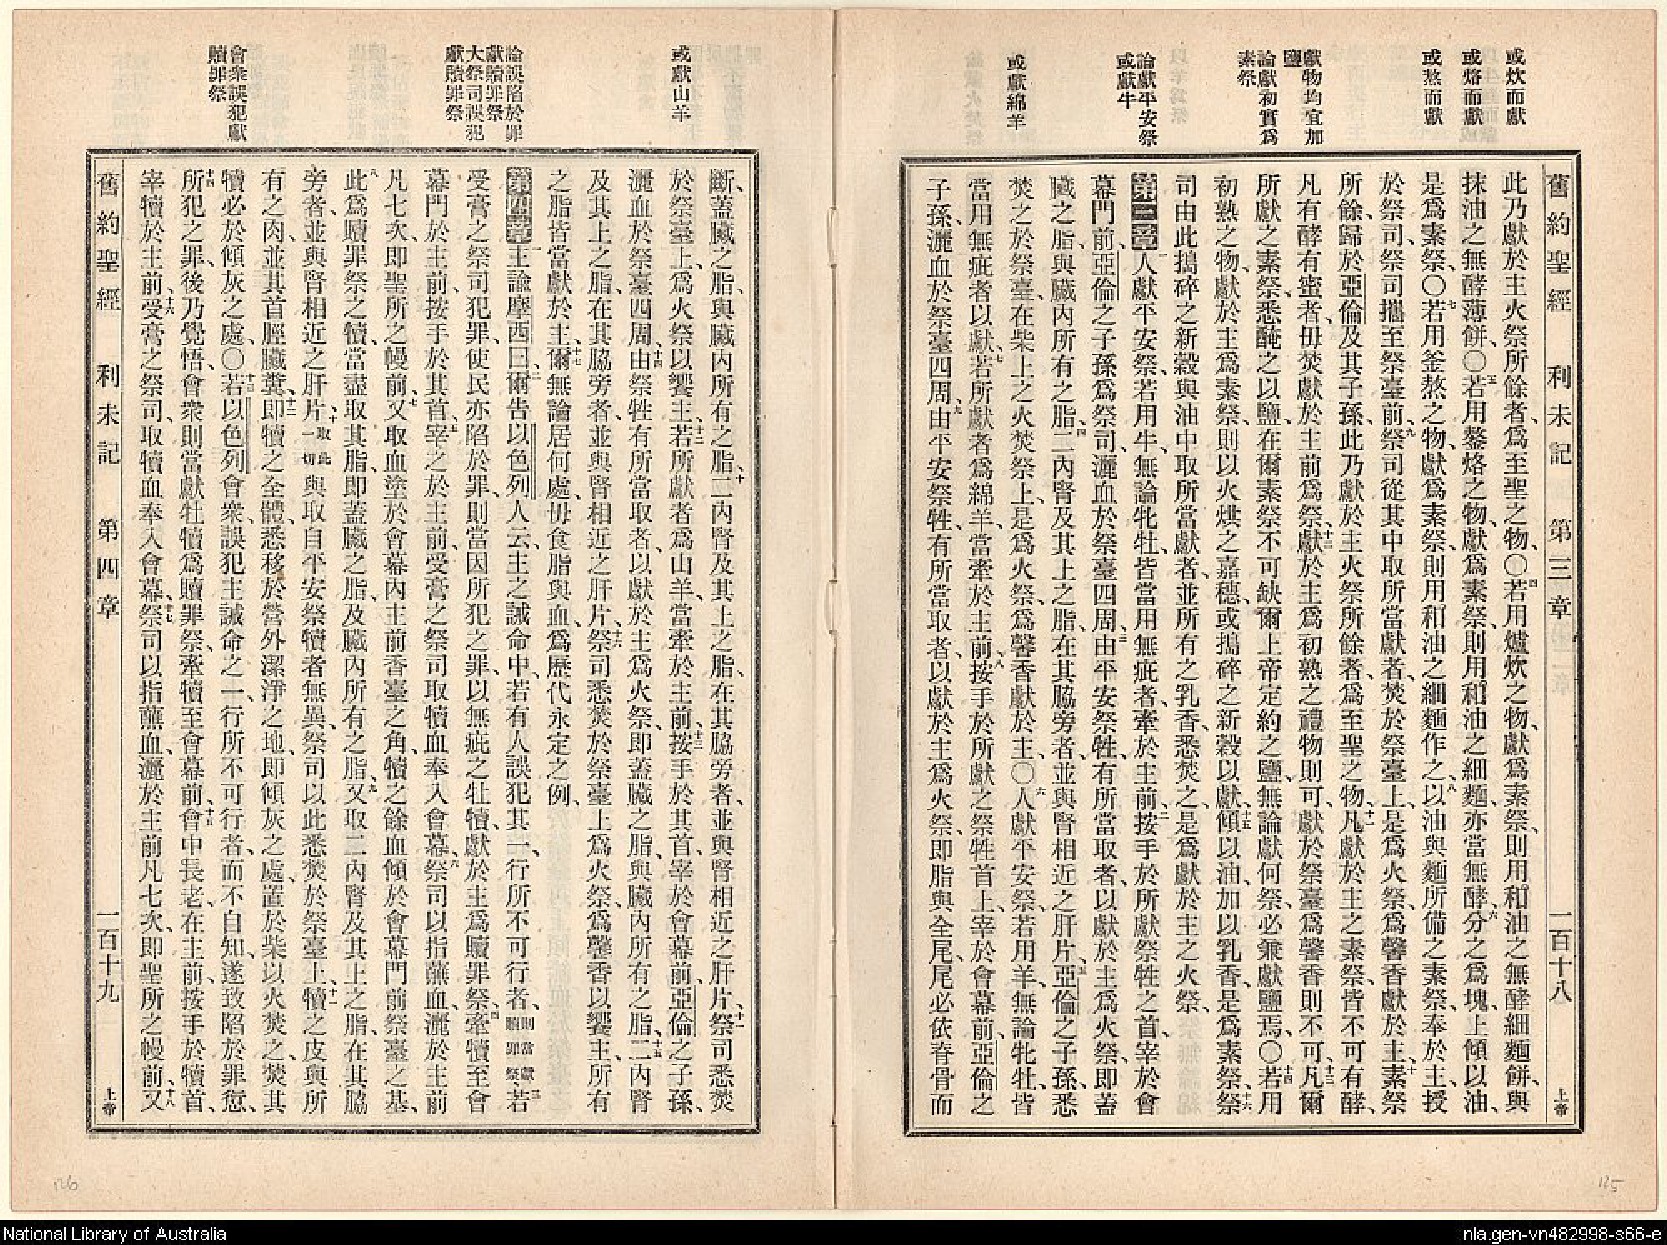 或炊而獻
或烙而獻
或熬而獻
獻物均宜加
鹽
論獻初實爲
素祭
論獻平安祭
或獻牛
或獻綿羊
舊約聖經 利未記 第三章 一百十八 上帝
此乃獻於主火祭所餘者、爲至聖之物、○四若用爐炊之物、獻爲素祭、則用和油之無酵細麵餅、與
抹油之無酵薄餅、○五若用鏊烙之物、獻爲素祭、則用和油之細麵、亦當無酵、六分之爲塊、上傾以油、
是爲素祭、○七若用釜熬之物、獻爲素祭、則用和油之細麵作之、八以油與麵所備之素祭、奉於主、授
於祭司、攜至祭臺前、九祭司從其中取所當獻者、焚於祭臺上、是爲火祭、爲馨香獻於主、十素祭
所餘、歸於亞倫及其子孫、此乃獻於主火祭所餘者、爲至聖之物、十一凡獻於主之素祭、皆不可有酵、
凡有酵有蜜者、毋焚獻於主前爲祭、十二獻於主爲初熟之禮物則可、獻於祭臺爲馨香則不可、十三凡爾
所獻之素祭、悉醃之以鹽、在爾素祭不可缺爾上帝定約之鹽、無論獻何祭、必兼獻鹽焉、○十四若用
初熟之物、獻於主爲素祭、則以火烘之嘉穗、或搗碎之新穀以獻、十五傾以油、加以乳香、是爲素祭、十六祭
司由此搗碎之新穀與油中、取所當獻者、並所有之乳香、悉焚之、是爲獻於主之火祭、
第三章一人獻平安祭、若用牛、無論牝牡、皆當用無疵者、牽於主前、二按手於所獻祭牲之首、宰於會
幕門前、亞倫之子孫爲祭司、灑血於祭臺四周、三由平安祭牲、有所當取者、以獻於主爲火祭、即蓋
臟之脂、與臟內所有之脂、四二內腎及其上之脂、在其脇旁者、並與腎相近之肝片、五亞倫之子孫、悉
焚之於祭臺、在柴上之火焚祭上、是爲火祭、爲馨香獻於主、○六人獻平安祭、若用羊、無論牝牡、皆
當用無疵者以獻、七若所獻者爲綿羊、當牽於主前、八按手於所獻之祭牲首上、宰於會幕前、亞倫之
子孫、灑血於祭臺四周、九由平安祭牲、有所當取者、以獻於主爲火祭、即脂與全尾、尾必依脊骨而
或獻山羊
論誤陷於罪
獻贖罪祭
大祭司誤犯
獻贖罪祭
會衆誤犯獻
贖罪祭
斷、蓋臟之脂、與臟內所有之脂、十二內腎及其上之脂、在其脇旁者、並與腎相近之肝片、十一祭司悉焚
於祭臺上、爲火祭、以饗主、十二若所獻者爲山羊、當牽於主前、十三按手於其首、宰於會幕前、亞倫之子孫、
灑血於祭臺四周、十四由祭牲有所當取者、以獻於主爲火祭、即蓋臟之脂、與臟內所有之脂、十五二內腎
及其上之脂、在其脇旁者、並與腎相近之肝片、十六祭司悉焚於祭臺上、爲火祭、爲馨香以饗主、所有
之脂、皆當獻於主、十七爾無論居何處、毋食脂與血、爲歷代永定之例、
第四章一主諭摩西曰、二爾告以色列人云、主之誡命中、若有人誤犯其一、行所不可行者、則當獻贖罪祭、三若
受膏之祭司犯罪、使民亦陷於罪、則當因所犯之罪、以無疵之牡犢、獻於主爲贖罪祭、四牽犢至會
幕門於主前、按手於其首、宰之於主前、五受膏之祭司取犢血、奉入會幕、六祭司以指蘸血、灑於主前
凡七次、即聖所之幔前、七又取血塗於會幕內主前香臺之角、犢之餘血、傾於會幕門前祭臺之基、
八此爲贖罪祭之犢、當盡取其脂、即蓋臟之脂、及臟內所有之脂、九又取二內腎及其上之脂、在其脇
旁者、並與腎相近之肝片、十取此一切與取自平安祭犢者無異、祭司以此悉焚於祭臺上、十一犢之皮與所
有之肉、並其首脛臟糞、十二即犢之全體、悉移於營外潔淨之地、即傾灰之處、置於柴以火焚之、焚其
犢必於傾灰之處、○十三若以色列會衆誤犯主誡命之一、行所不可行者、而不自知、遂致陷於罪愆、
十四所犯之罪、後乃覺悟、會衆則當獻牡犢爲贖罪祭、牽犢至會幕前、十五會中長老在主前、按手於犢首、
宰犢於主前、十六受膏之祭司、取犢血奉入會幕、十七祭司以指蘸血、灑於主前凡七次、即聖所之幔前、十八又
舊約聖經 利未記 第四章 一百十九 上帝
126
125
National Library of Australia
nla.gen-vn482998-s66-e